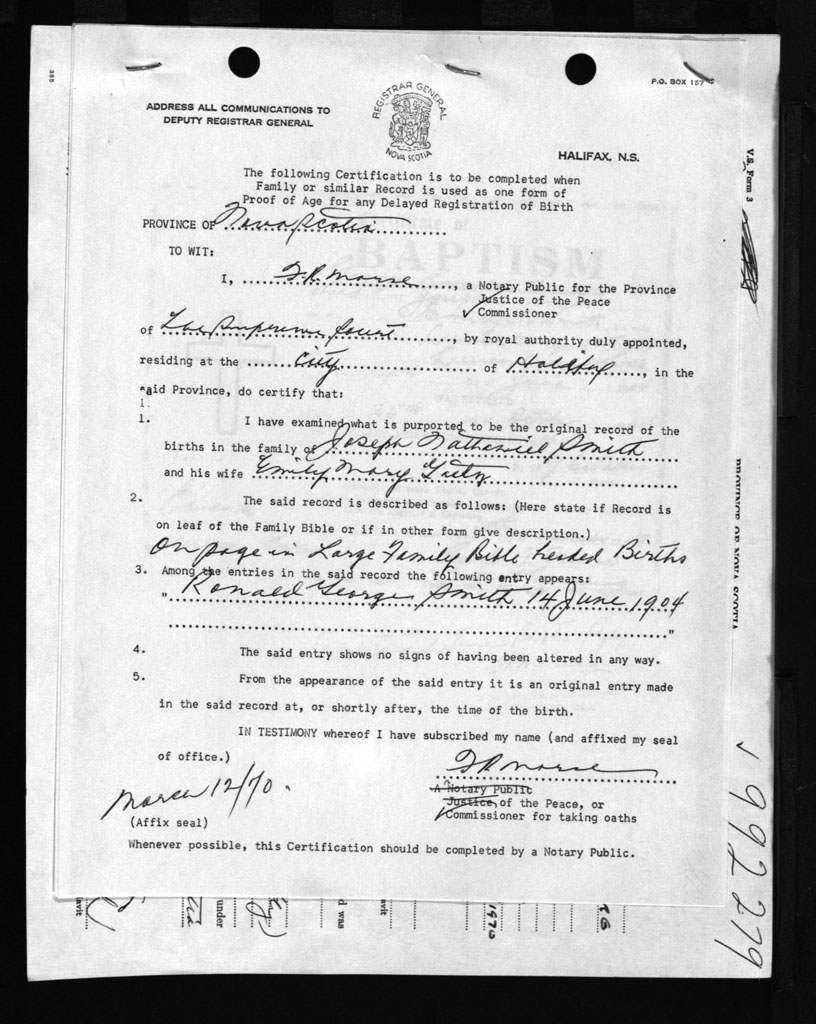 385
P.O. BOX 157
ADDRESS ALL COMMUNICATIONS TO
DEPUTY REGISTRAR GENERAL
REGISTRAR GENERAL
NOVA SCOTIA
HALIFAX, N.S.
V.S. Form 3
The following Certification is to be completed when
Family or similar Record is used as one form of
Proof of Age for any Delayed Registration of Birth
PROVINCE OF Nova Scotia
BAPTISM
TO WIT:
I, Morse, a Notary Public for the Province
Justice of the Peace
✓ Commissioner
of The Supreme Court, by royal authority duly appointed,
residing at the City of Halifax, in the
said Province, do certify that:
1.
1. I have examined what is purported to be the original record of the
births in the family of Joseph Nathaniel Smith
and his wife Emily Mary
2. The said record is described as follows: (Here state if Record is
on leaf of the Family Bible or if in other form give description.)
On page in Large Family Bible headed Births
PROVINCE OF NOVA SCOTIA
3. Among the entries in the said record the following entry appears:
" Ronald George Smith 14 June 1904
"
4. The said entry shows no signs of having been altered in any way.
5. From the appearance of the said entry it is an original entry made
in the said record at, or shortly after, the time of the birth.
IN TESTIMONY whereof I have subscribed my name (and affixed my seal
of office.)
Morse
March 12/70.
A Notary Public
Justice, of the Peace, or
✓ Commissioner for taking oaths
(Affix seal)
Whenever possible, this Certification should be completed by a Notary Public.
992279
avit
under
d was
avit
1970